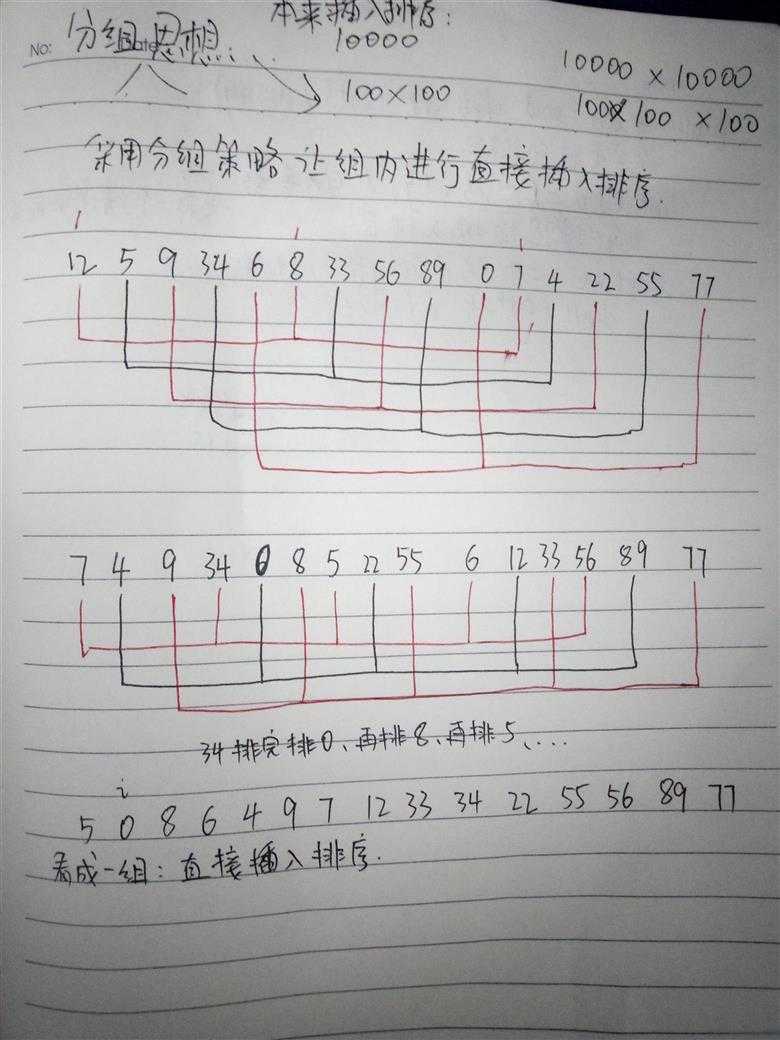 本来插入排序:
No: 分组思想:
10000
10000 × 10000
100×100
100×100 ×100
采用分组策略让组内进行直接插入排序.
12 5 9 34 6 8 33 56 89 0 7 4 22 55 77
7 4 9 34 0 8 5 22 55 6 12 33 56 89 77
34排完排0、再排8、再排5、...
i
5 0 8 6 4 9 7 12 33 34 22 55 56 89 77
看成一组:直接插入排序.